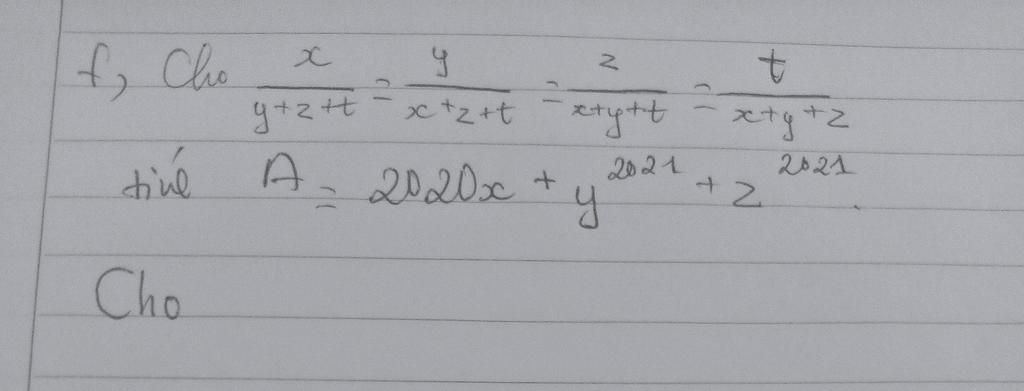 f, Cho x/(y+z+t) = y/(x+z+t) = z/(x+y+t) = t/(x+y+z)
tính A = 2020x + y^2021 + z^2021.
Cho